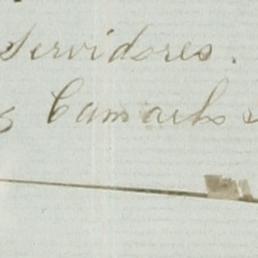 Servidores.
Camacho